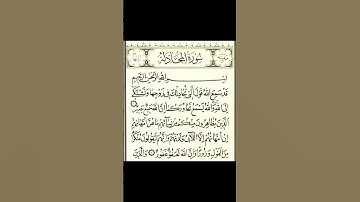 سُورَةُ الْمُجَادلَة
بِسْمِ اللَّهِ الرَّحْمَنِ الرَّحِيمِ
قَدْ سَمِعَ اللَّهُ قَوْلَ الَّتِي تُجَادِلُكَ فِي زَوْجِهَا وَتَشْتَكِي
إِلَى اللَّهِ وَاللَّهُ يَسْمَعُ تَحَاوُرَكُمَا إِنَّ اللَّهَ سَمِيعٌ بَصِيرٌ
الَّذِينَ يُظَاهِرُونَ مِنْكُمْ مِنْ نِسَائِهِمْ مَا هُنَّ أُمَّهَاتِهِمْ
إِنْ أُمَّهَاتُهُمْ إِلَّا اللَّائِي وَلَدْنَهُمْ وَإِنَّهُمْ لَيَقُولُونَ مُنْكَرًا
مِنَ الْقَوْلِ وَزُورًا وَإِنَّ اللَّهَ لَعَفُوٌّ غَفُورٌ وَالَّذِينَ